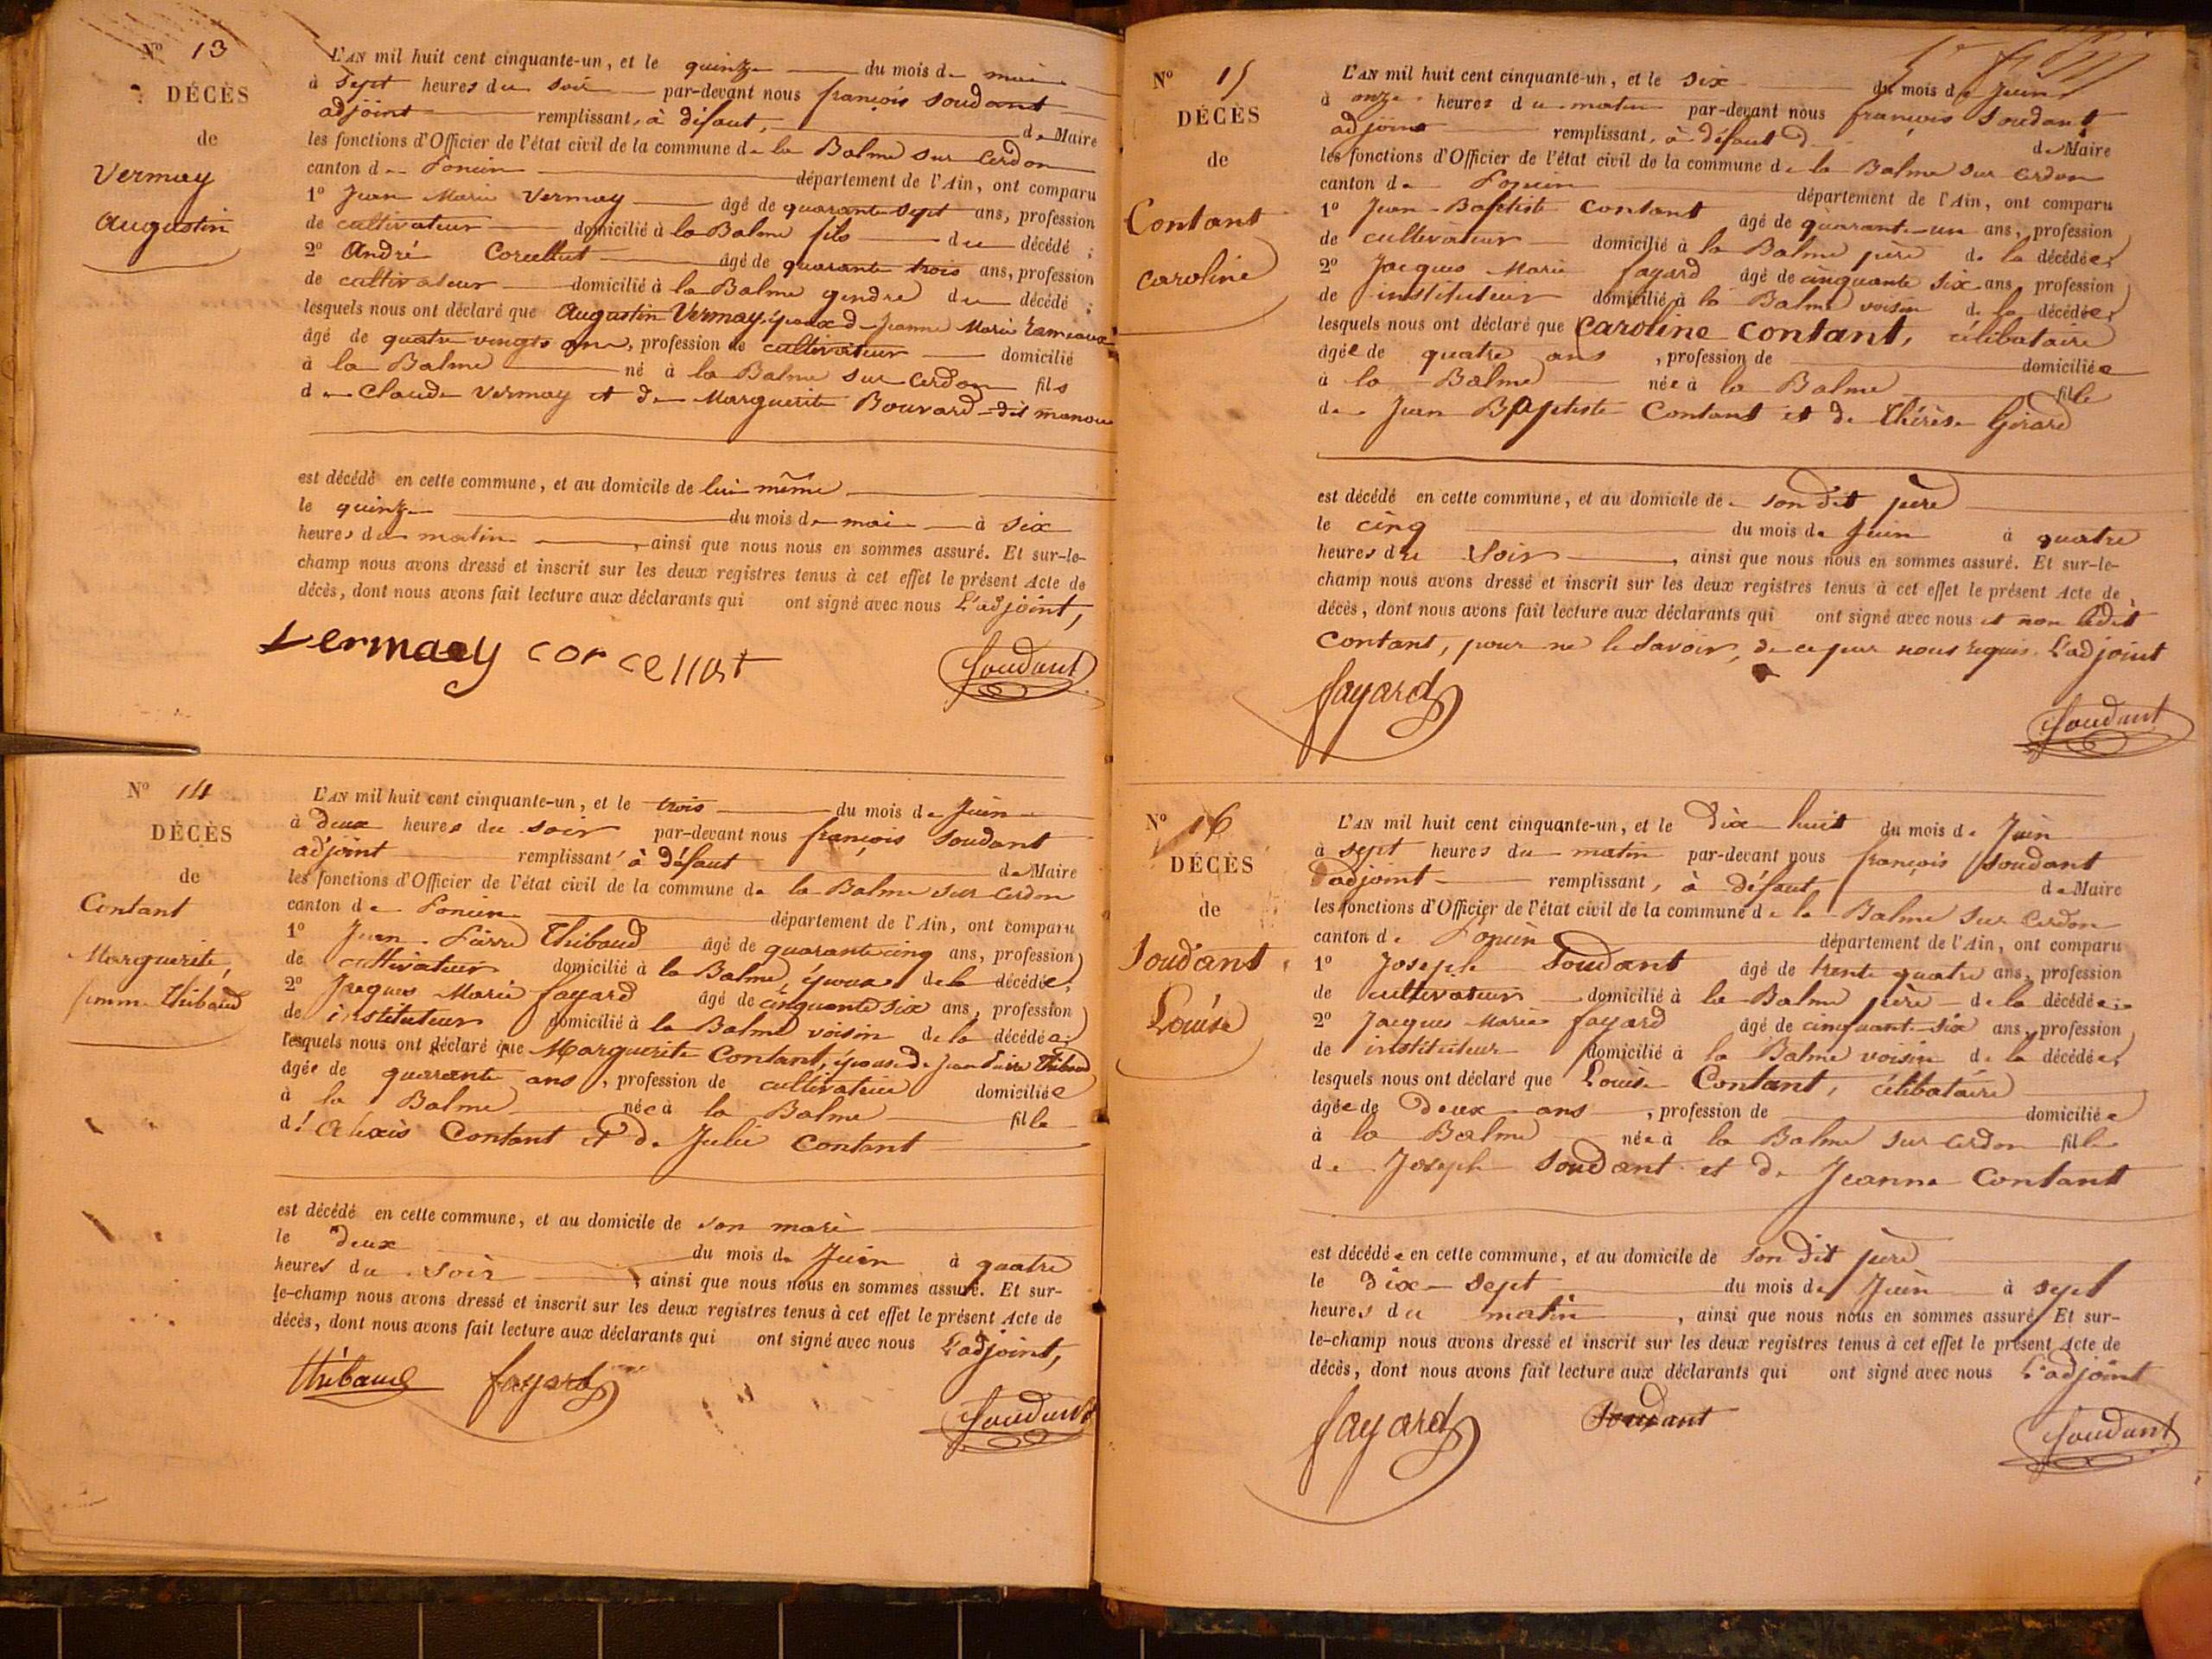 Nº 13
DÉCÈS
de
Vermay
Augustin
L'AN mil huit cent cinquante-un, et le quinze du mois de mai
à sept heures du soir par-devant nous françois Soudant
adjoint remplissant, à défaut, de Maire
les fonctions d'Officier de l'état civil de la commune de la Balme sur Cerdon
canton de Poncin département de l'Ain, ont comparu
1º Jean Marie Vermay âgé de quarante sept ans, profession
de cultivateur domicilié à la Balme fils du décédé ;
2º André Corcellut âgé de quarante trois ans, profession
de cultivateur domicilié à la Balme gendre du décédé ;
lesquels nous ont déclaré que Augustin Vermay, époux d Jeanne Marie
âgé de quatre vingts onze, profession de cultivateur domicilié
à la Balme né à la Balme sur Cerdon fils
de Claude Vermay et de Marguerite Bouvard dit
est décédé en cette commune, et au domicile de lui même
le quinze du mois de mai à six
heures du matin, ainsi que nous nous en sommes assuré. Et sur-le-
champ nous avons dressé et inscrit sur les deux registres tenus à cet effet le présent Acte de
décès, dont nous avons fait lecture aux déclarants qui ont signé avec nous L'adjoint,
Vermaey corcellat Soudant
Nº 14
DÉCÈS
de
Contant
Marguerite,
femme Thibaud
L'AN mil huit cent cinquante-un, et le trois du mois de Juin
à deux heures du soir par-devant nous françois Soudant
adjoint remplissant à défaut de Maire
les fonctions d'Officier de l'état civil de la commune de la Balme sur Cerdon
canton de Poncin département de l'Ain, ont comparu
1º Jean Pierre Thibaud âgé de quarante cinq ans, profession
de cultivateur domicilié à la Balme, époux de la décédée ;
2º Jacques Marie fayard âgé de cinquante six ans, profession
de instituteur domicilié à la Balme voisin de la décédée ;
lesquels nous ont déclaré que Marguerite Contant, épouse de Jean Pierre Thibaud
âgée de quarante ans, profession de cultivatrice domiciliée
à la Balme née à la Balme fille
d'Alexis Contant et de Julie Contant
est décédé en cette commune, et au domicile de son mari
le deux du mois de Juin à quatre
heures du soir, ainsi que nous nous en sommes assuré. Et sur-
le-champ nous avons dressé et inscrit sur les deux registres tenus à cet effet le présent Acte de
décès, dont nous avons fait lecture aux déclarants qui ont signé avec nous L'adjoint,
thibaud fayard Soudant
Nº 15
DÉCÈS
de
Contant
Caroline
L'AN mil huit cent cinquante-un, et le six du mois de Juin
à onze heures du matin par-devant nous françois Soudant
adjoint remplissant, à défaut d de Maire
les fonctions d'Officier de l'état civil de la commune de la Balme sur Cerdon
canton de Poncin département de l'Ain, ont comparu
1º Jean-Baptiste Contant âgé de quarante-un ans, profession
de cultivateur domicilié à la Balme père de la décédée ;
2º Jacques Marie fayard âgé de cinquante six ans profession
de instituteur domicilié à la Balme voisin de la décédée ;
lesquels nous ont déclaré que Caroline Contant, célibataire
âgée de quatre ans, profession de domiciliée
à la Balme née à la Balme fille
de Jean Baptiste Contant et de Thérèse Girard
est décédé en cette commune, et au domicile de son dit père
le cinq du mois de Juin à quatre
heures du soir, ainsi que nous nous en sommes assuré. Et sur-le-
champ nous avons dressé et inscrit sur les deux registres tenus à cet effet le présent Acte de
décès, dont nous avons fait lecture aux déclarants qui ont signé avec nous et non ledit
Contant, pour ne le savoir, de ce par nous requis. L'adjoint
fayard Soudant
Nº 16
DÉCÈS
de
Soudant
Louise
L'AN mil huit cent cinquante-un, et le dix-huit du mois de Juin
à sept heures du matin par-devant nous françois Soudant
adjoint remplissant, à défaut de Maire
les fonctions d'Officier de l'état civil de la commune de la Balme sur Cerdon
canton de Poncin département de l'Ain, ont comparu
1º Joseph Soudant âgé de trente quatre ans, profession
de cultivateur domicilié à la Balme père de la décédée ;
2º Jacques Marie fayard âgé de cinquante-six ans, profession
de instituteur domicilié à la Balme voisin de la décédée ;
lesquels nous ont déclaré que Louise Contant, célibataire
âgée de deux ans, profession de domiciliée
à la Balme née à la Balme sur Cerdon fille
de Joseph Soudant et de Jeanne Contant
est décédée en cette commune, et au domicile de son dit père
le dix-sept du mois de Juin à sept
heures du matin, ainsi que nous nous en sommes assuré. Et sur-
le-champ nous avons dressé et inscrit sur les deux registres tenus à cet effet le présent Acte de
décès, dont nous avons fait lecture aux déclarants qui ont signé avec nous L'adjoint
fayard Soudant Soudant